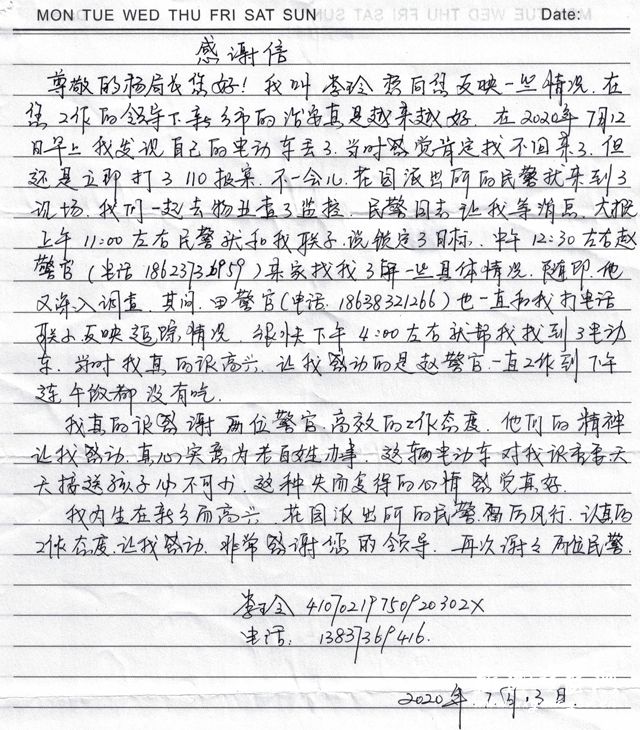 MON TUE WED THU FRI SAT SUN Date:
感谢信
尊敬的杨局长您好！我叫娄玲 要向您反映一些情况. 在
您工作的领导下新乡市的治安真是越来越好. 在2020年7月12
日早上我发现自己的电动车丢了. 当时感觉肯定找不回来了. 但
还是立即打了110报案. 不一会儿. 花园派出所的民警就来到了
现场. 我们一起去物业查了监控. 民警回去让我等消息. 大概
上午11:00左右民警就和我联系. 说锁定了目标. 中午12:30左右赵
警官(电话18623731959)来家找我了解一些具体情况. 随即. 他
又深入调查. 其间. 田警官(电话. 18638321266)也一直和我打电话
联系反映追踪情况. 很快下午4:00左右就帮我找到了电动
车. 当时我真的很高兴. 让我感动的是赵警官一直工作到下午
连午饭都没有吃.
我真的很感谢两位警官. 高效的工作态度. 他们的精神
让我感动. 真心实意为老百姓办事. 这辆电动车对我很重要天
天接送孩子必不可少. 这种失而复得的心情感觉真好.
我为生在新乡而高兴. 花园派出所的民警雷厉风行. 认真的
工作态度. 让我感动. 非常感谢您的领导. 再次谢谢两位民警.
娄玲 41070219750920302X
电话: 13837369416.
2020年.7月13日.